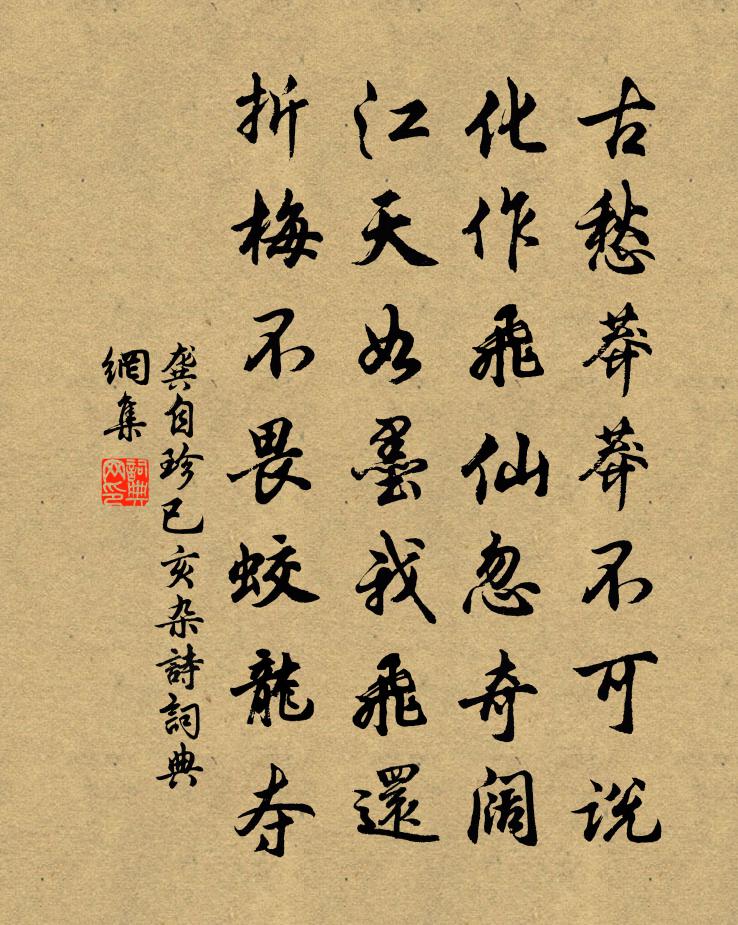 古愁莽莽不可说
化作飛仙忽奇阔
江天如墨我飛還
折梅不畏蛟龍夺
龔自珍己亥杂詩詞典
網集
詞典网印